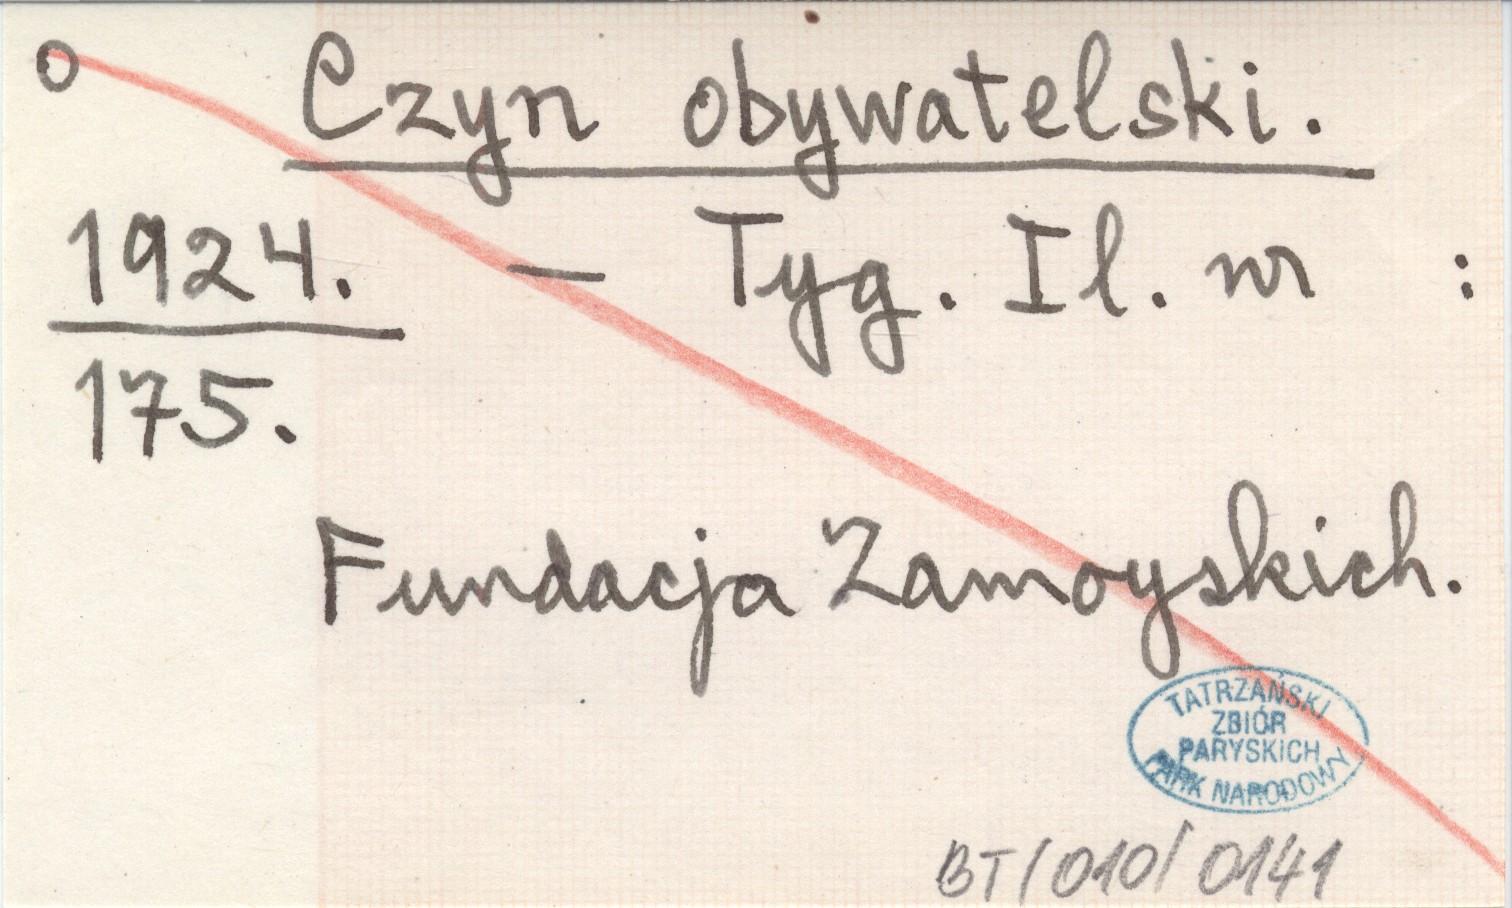 O Czyn obywatelski.
1924. — Tyg. Il. nr :
175.
Fundacja Zamoyskich.
TATRZAŃSKI
ZBIÓR
PARYSKICH
PARK NARODOWY
BT/010/0141